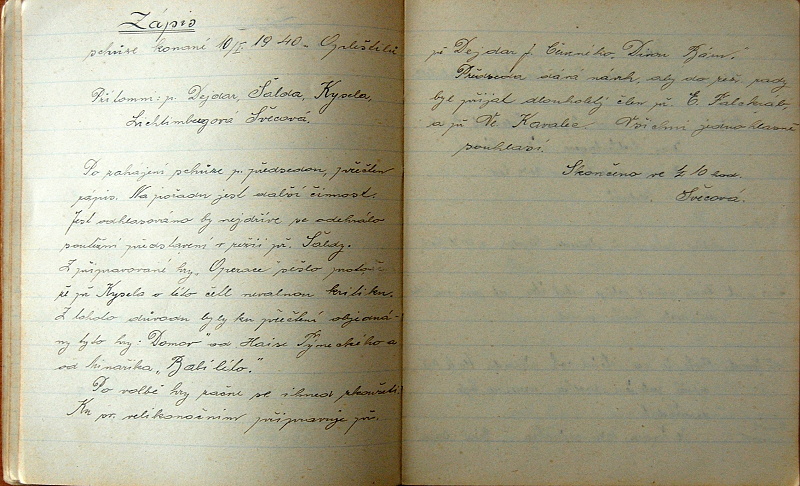 Zápis
schůze konané 10/I. 1940 - Opletště
Přítomni: p. Dejdar, Šalda, Kysela,
Lichtenbergová Švecová.
Po zahájení schůze p. předsedou, přečten
zápis. Na pořadu jest další činnost.
Jest odhlasováno by nejdříve se odehrálo
soutěžní představení v režii př. Šaldy.
Z připravované hry „Operace sešlo
že př. Kysela o této četl nevalnou kritiku.
Z tohoto důvodu byly ku přečtení objedná-
ny tyto hry: „Domov" od Haise Týneckého a
od Kinařika „Babí léto."
Po volbě hry začne se ihned zkoušeti.
Ku pr. velikonočním připravuje př.
př Dejdar J. Červného,
Předseda dává návrh, aby do řed. rady
byl přijat dlouholetý člen př. E.
a př. Vl. Kavalec. Všichni jednohlasně
souhlasí.
Skončeno ve ½ 10 hod.
Švecová.